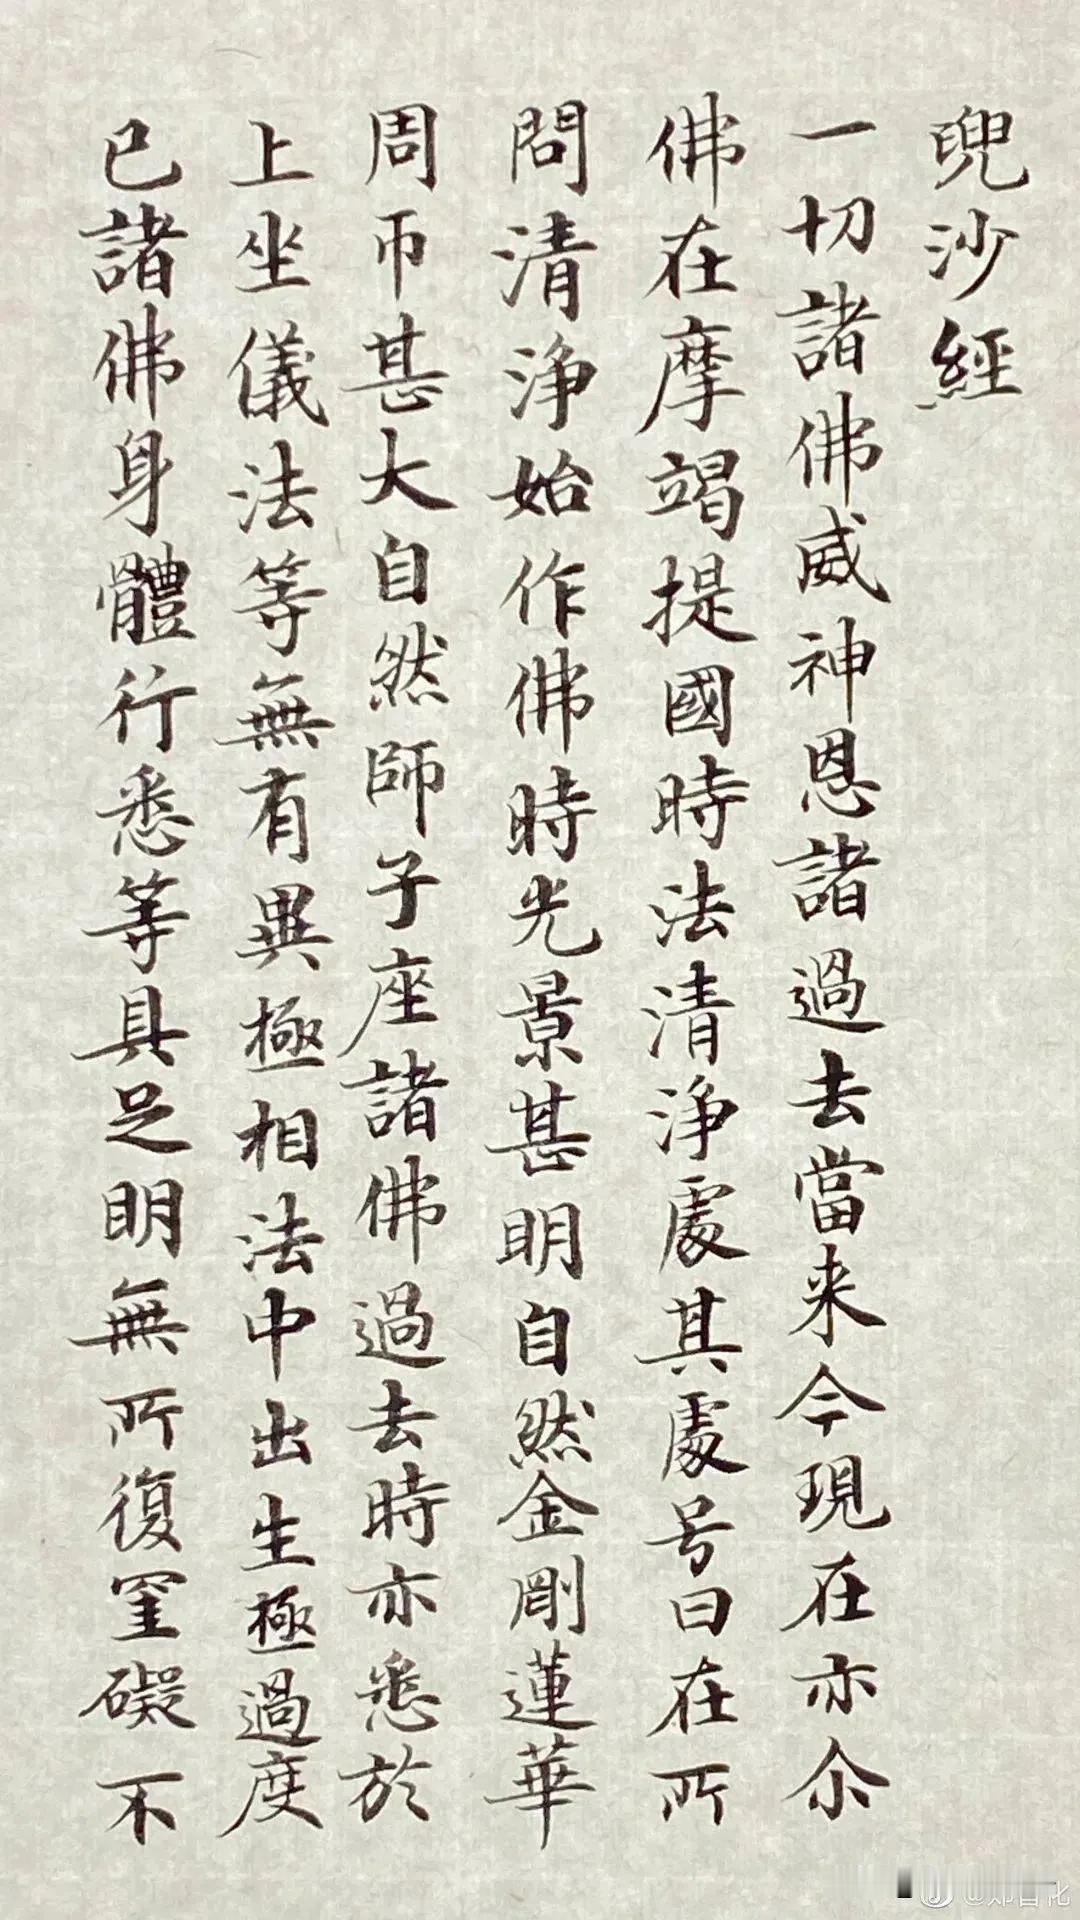 兜沙經
一切諸佛威神恩諸過去當来今現在亦尒
佛在摩竭提國時法清淨處其處号曰在所
問清淨始作佛時光景甚明自然金剛蓮華
周帀甚大自然師子座諸佛過去時亦悉於
上坐儀法等無有異極相法中出生極過度
已諸佛身體行悉等具足明無所復罣礙不